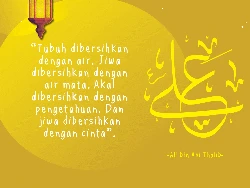 "Tubuh dibersihkan
dengan air. Jiwa
dibersihkan dengan
air mata. Akal
dibersihkan dengan
pengetahuan. Dan
jiwa dibersihkan
dengan cinta".
علي
-Ali bin Abi Thalib-